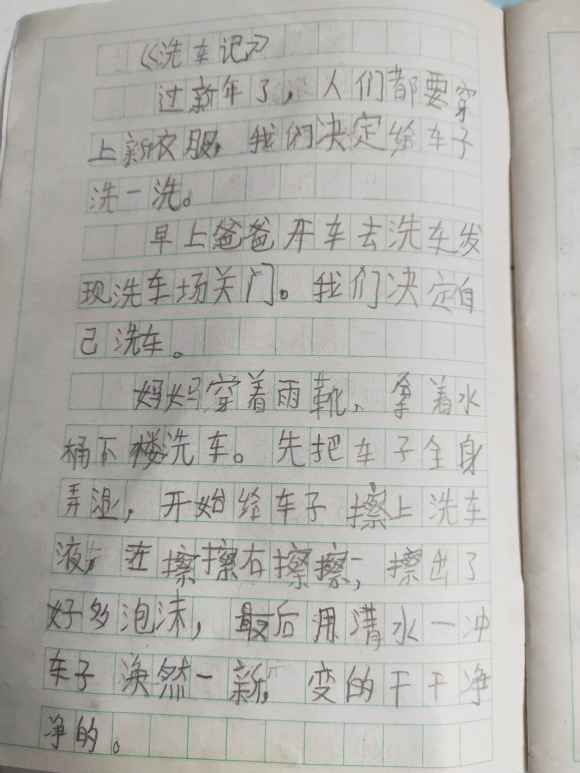 《洗车记》
过新年了，人们都要穿
上新衣服，我们决定给车子
洗一洗。
早上爸爸开车去洗车发
现洗车场关门。我们决定自
己洗车。
妈妈穿着雨靴、拿着水
桶下楼洗车。先把车子全身
弄湿，开始给车子擦上洗车
液，左擦擦右擦擦，擦出了
好多泡沫，最后用清水一冲
车子涣然一新，变的干干净
净的。